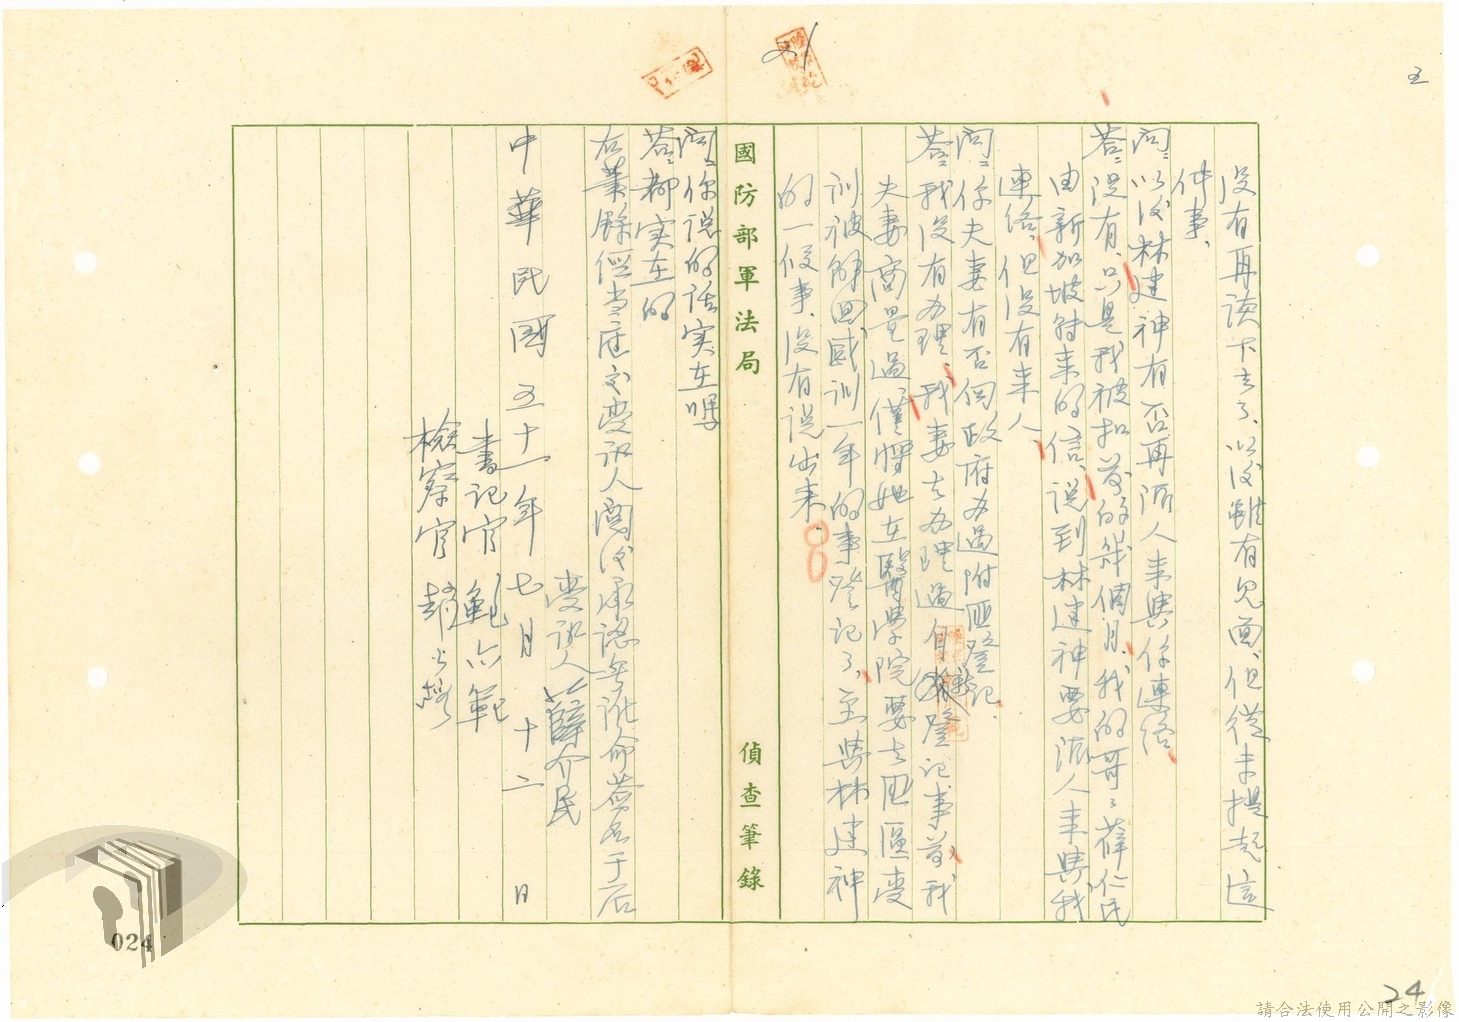 五
21
沒有再談下去了、以後雖有見面、但從未提起這
件事、
問：以後林建神有否再派人來與你連絡
答：沒有、只是我被扣前的幾個月、我的哥哥薛仁民
由新加坡轉來的信、說到林建神要派人來與我
連絡、但沒有來人、
問：你夫妻有否向政府辦過附匪登記、
答：我沒有办理、我妻去办理過自首登記事前我
夫妻商量過、僅將她在醫學院要去匪區受
訓被解回感訓一年的事登記了、至與林建神
的一段事、沒有說出來、
國防部軍法局
偵查筆錄
問：你說的話实在嗎
答：都实在的
右筆錄經当庭交受訊人閱後承認無訛命簽名于后
受訊人 薛介民
中華民國五十一年七月十二日
書記官
檢察官 趙
024
24
請合法使用公開之影像